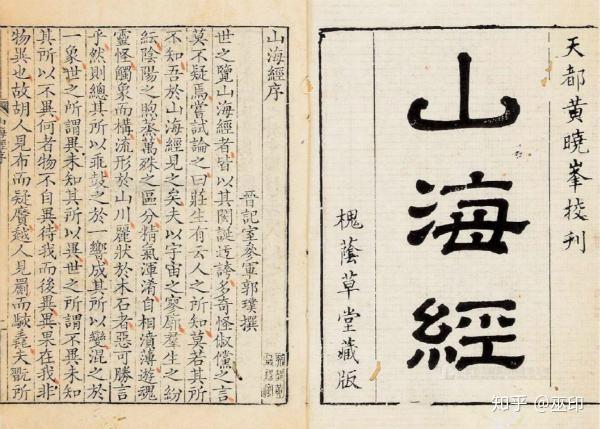 天都黃曉峯校刊
山海經
槐蔭草堂藏版
山海經序
晉記室參軍郭璞撰
世之覽山海經者皆以其閎誕迂誇多奇怪俶儻之言
莫不疑焉嘗試論之曰莊生有云人之所知莫若其所
不知吾於山海經見之矣夫以宇宙之寥廓羣生之紛
紜陰陽之煦蒸萬殊之區分精氣渾淆自相濆薄遊魂
靈怪觸象而構流形於山川麗狀於木石者惡可勝言
乎然則總其所以乖鼓之於一響成其所以變混之於
一象世之所謂異未知其所以異世之所謂不異未知
其所以不異何者物不自異待我而後異異果在我非
物異也故胡人見布而疑黂越人見罽而駭毳夫翫所
知乎 @巫印